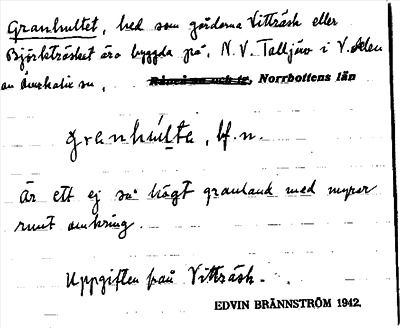 Granhultet, hed som gårdarna Vitträsk eller
Björkträsket äro byggda på, N. V. Talljärv i V. delen
av Överkalix sn, Norrbottens län
granhúlta, bf. n.
Är ett ej så högt granland med myrar
runt omkring.
Uppgiften från Vitträsk.
EDVIN BRÄNNSTRÖM 1942.